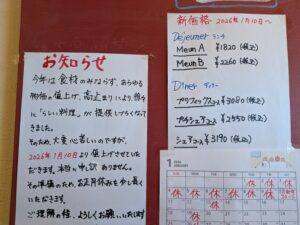 お知らせ
今年は食材のみならず、あらゆる
物価の値上げ、高止まりにより、
「らしい料理」が提供しづらくなって
きました。
そのため、大変心苦しいのですが、
2026年1月10日より値上げさせていた
だきます。本当に申し訳ありません。
その準備のため、お正月休みを少し長く
いただきます。
ご理解の程、よろしくお願いいたします
新価格 2026年1月10日〜
Déjeuner ランチ
Menu A ¥1820 (税込)
Menu B ¥2260 (税込)
Dîner ディナー
プリフィックスコース ¥3080 (税込)
プチシェフコース ¥2550 (税込)
シェフコース ¥3190 (税込)
1
2026
JANUARY
休 休 休
休 休 休 休 休
11 12 13 14 15 16 17
18 19 20 21 22 23 24